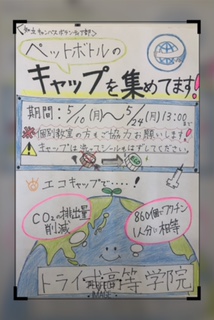 ペットボトルの
キャップを集めてます!
期間：5/10(月)〜5/24(月)13:00まで
※個別教室の方もご協力お願いします!
⚠キャップは洗ってシールをはずしてください。
エコキャップで・・・・!
CO₂の排出量
削減
860個でワクチン
1人分に相等
トライ式高等学院